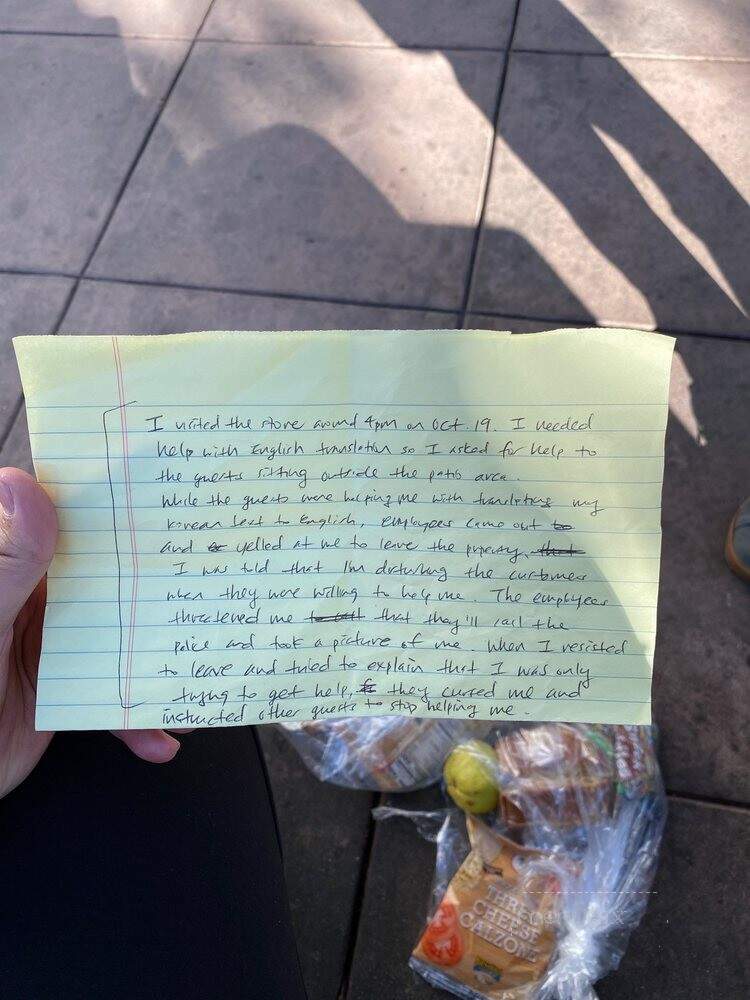 I visited the store around 4pm on Oct. 19. I needed
help with English translation so I asked for help to
the guests sitting outside the patio area.
While the guests were helping me with translating my
Korean text to English, employees came out to
and yelled at me to leave the property, that
I was told that I'm disturbing the customers
when they were willing to help me. The employees
threatened me to call that they'll call the
police and took a picture of me. When I resisted
to leave and tried to explain that I was only
trying to get help, they cursed me and
instructed other guests to stop helping me.
THREE
CHEESE
CALZONE